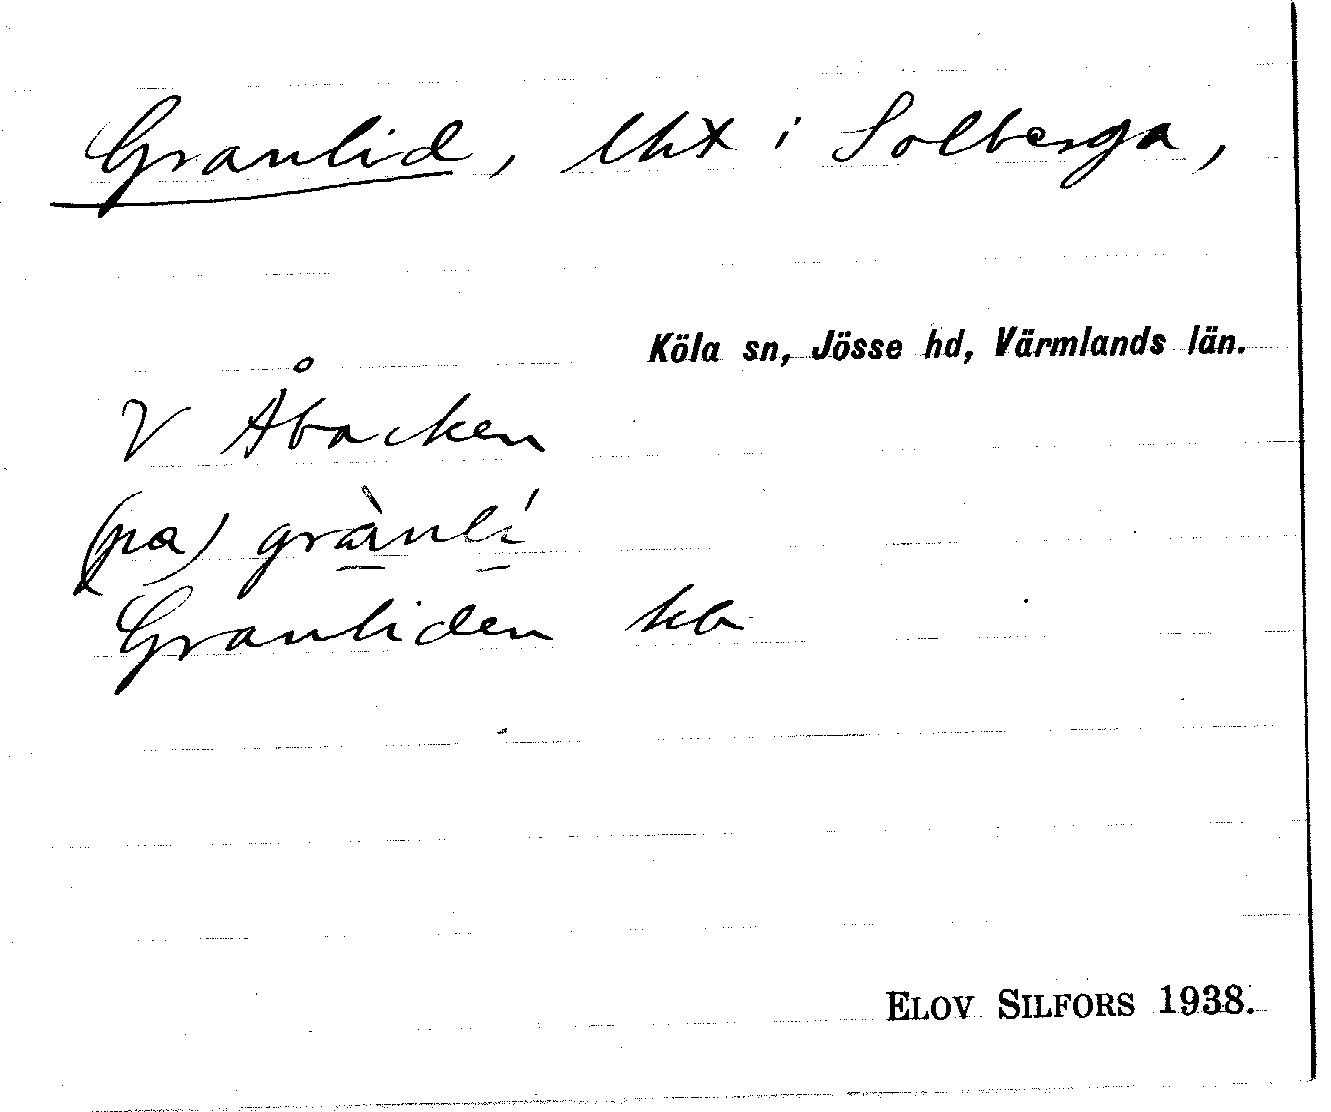 Granlid, lht i Solberga,
Köla sn, Jösse hd, Värmlands län.
V Åbacken
(pa) grànlí
Granliden
ELOV SILFORS 1938.